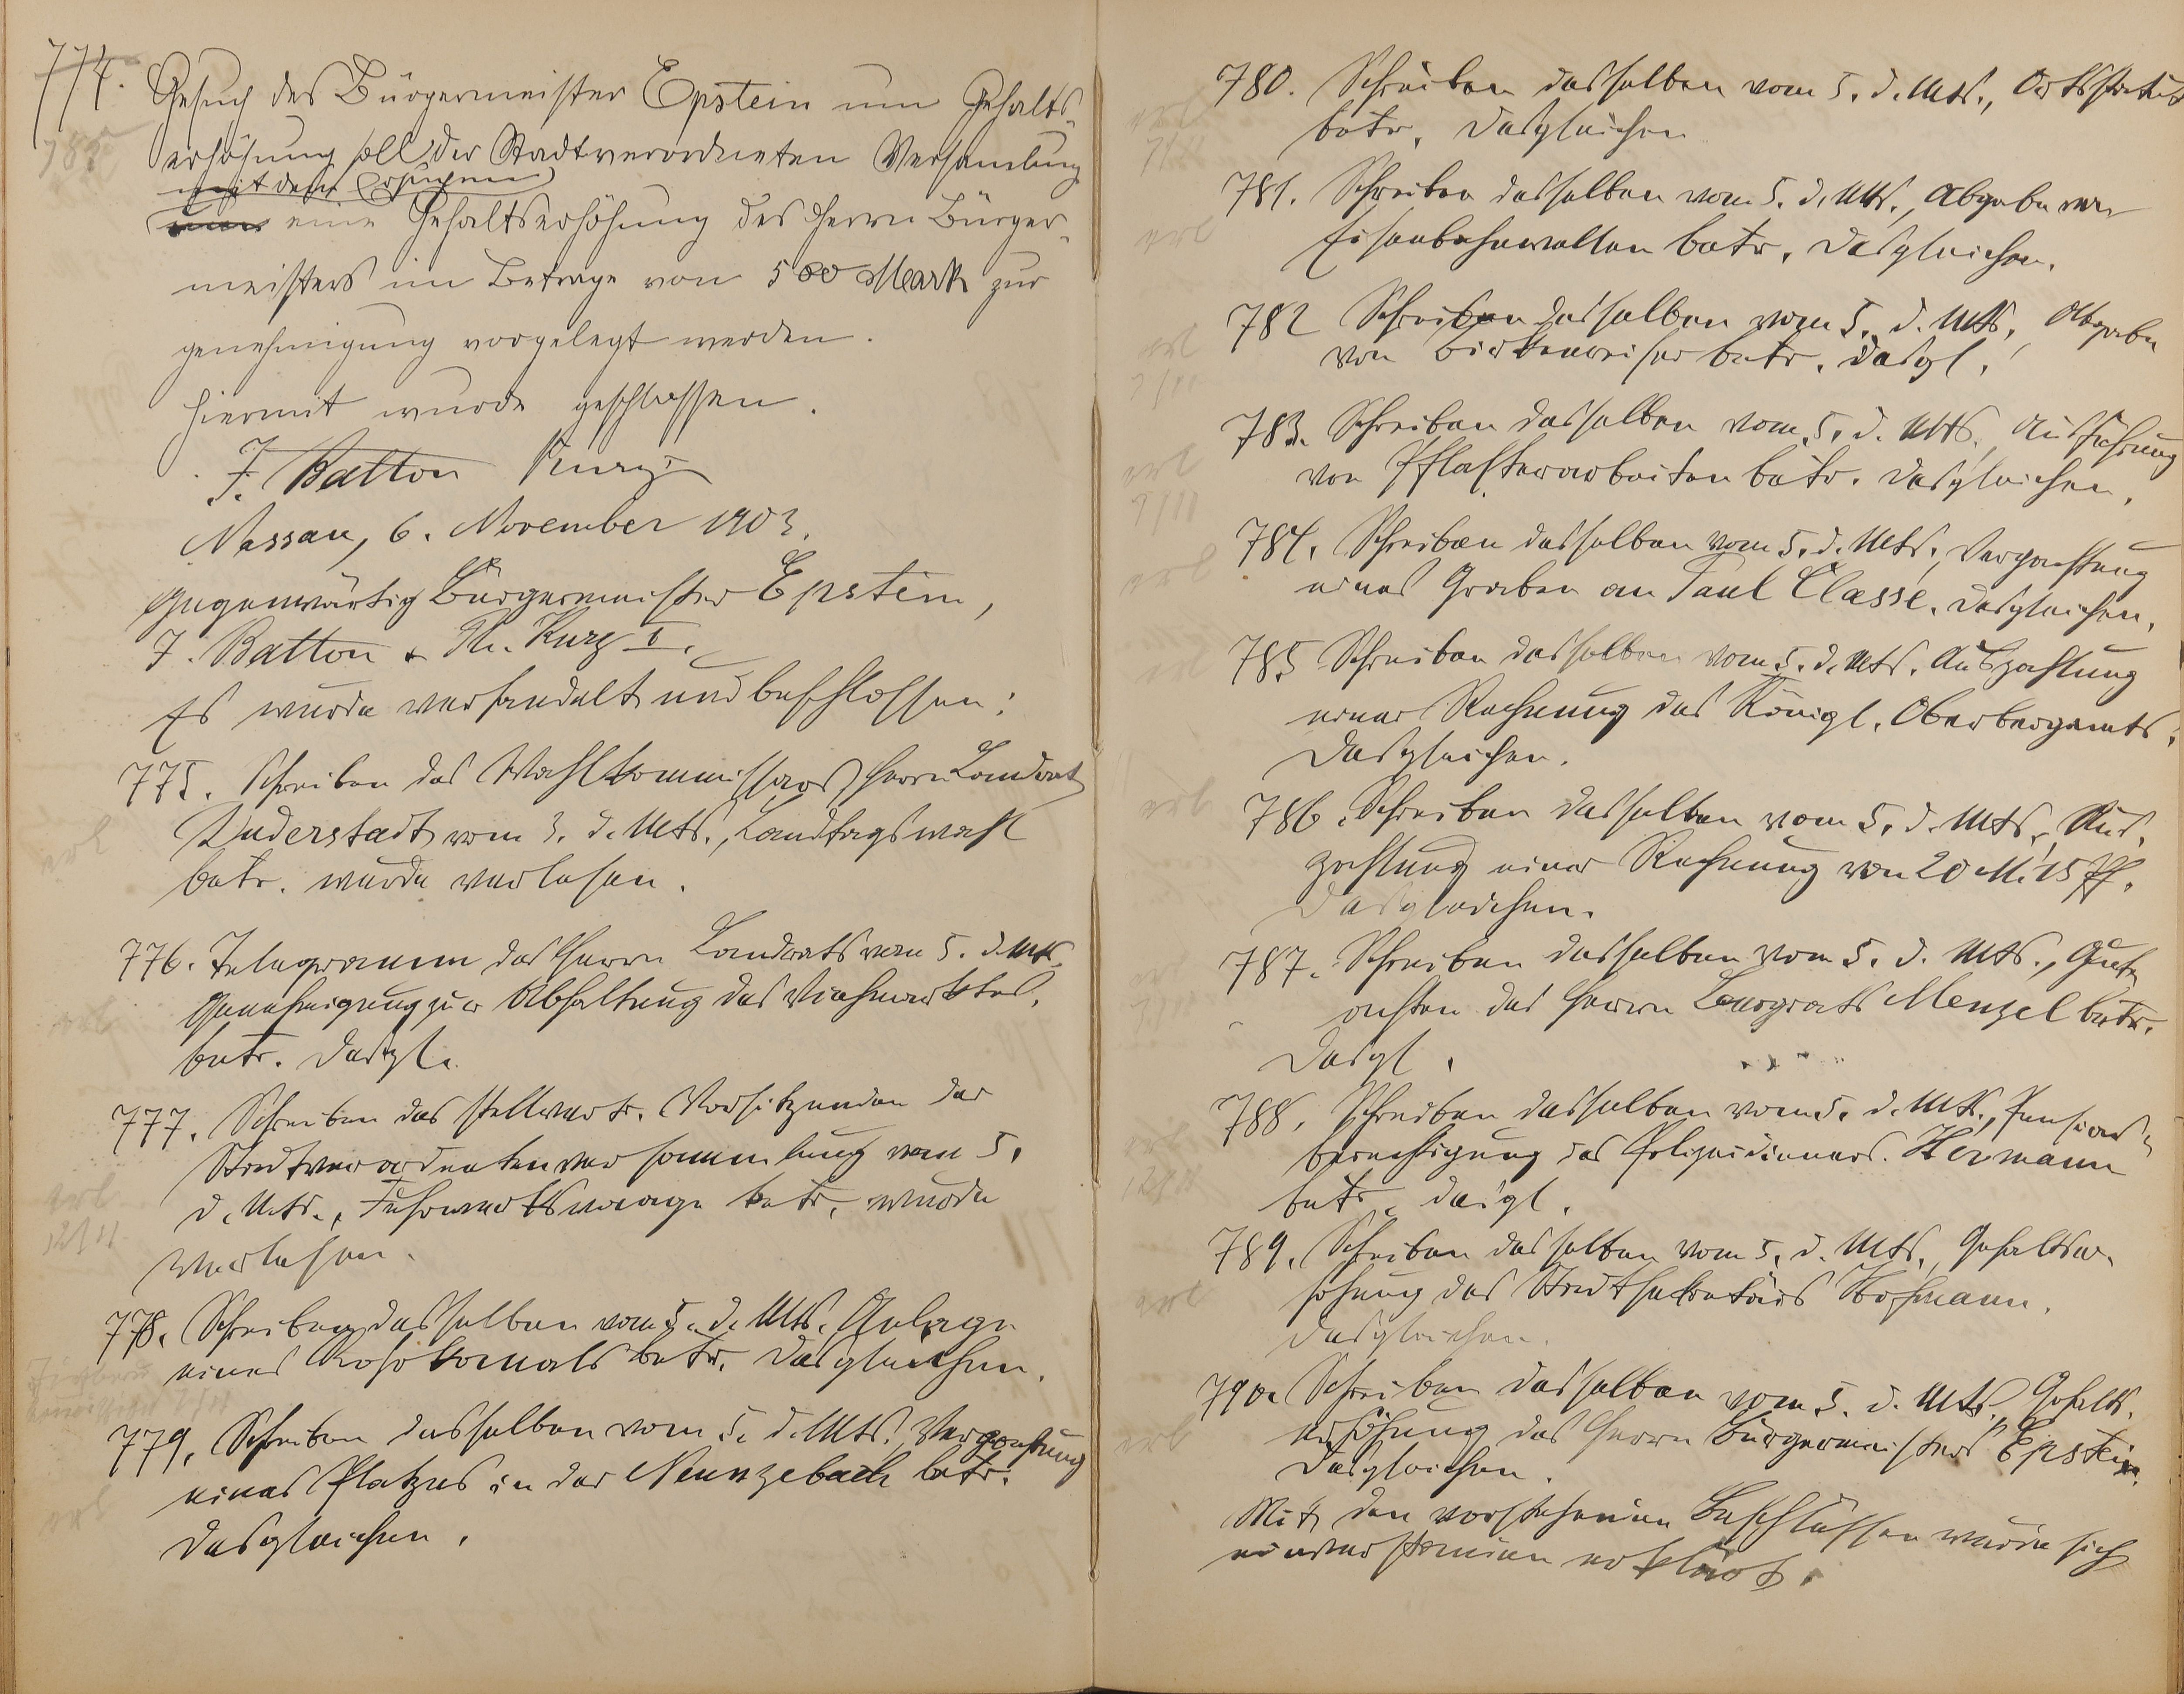 774. Gesuch des Bürgermeister Epstein um Gehalts-
erhöhung soll der Stadtverordneten Versamlung
mit dem Ersuchen
eine Gehaltserhöhung des Herrn Bürger-
meisters im Betrage von 500 Mark zur
genehmigung vorgelegt werden.
Hiermit wurde geschlossen.
J. Batton Kurz
Nassau, 6. November 1903.
Gegenwärtig Bürgermeister Epstein,
J. Batton & Ph. Kurz I.
Es wurde verhandelt und beschlossen:
775. Schreiben des Wahlkommissars Herrn Landrat
Duderstadt vom 3. d. Mts., Landtagswahl
betr. wurde verlesen.
erl
776. Telegramm des Herrn Landrats vom 5. d. Mts.
Genehmigung zur Abhaltung des Viehmarktes,
betr. desgl.
erl
777. Schreiben des stellvertr. Vorsitzenden der
Stadtverordnetenversammlung vom 5.
d. Mts., Fuhrwerkswaage betr. wurde
verlesen.
erl
12/11.
778. Schreiben desselben vom 5. d. Mts. Anlage
eines Rohrkanals betr. desgleichen.
779. Schreiben desselben vom 5. d. Mts. Verpachtung
eines Platzes in der Neunzebach betr.
desgleichen.
erl
780. Schreiben desselben vom 5. d. Mts., Ortsstatut
betr. desgleichen
erl
781. Schreiben desselben vom 5. d. Mts., Abgabe von
Eisenbahnwellen betr. desgleichen.
erl
782 Schreiben desselben vom 5. d. Mts., Abgabe
von Birkenreiser betr. desgl.
erl
783. Schreiben desselben vom 5. d. Mts. Ausführung
von Pflasterarbeiten betr. desgleichen.
erl
9/11
784. Schreiben desselben vom 5. d. Mts., Verpachtung
eines Graben an Paul Classe, desgleichen.
erl
785 Schreiben desselben vom 5. d. Mts. Auszahlung
einer Rechnung des Königl. Oberbergamts,
desgleichen.
erl
786. Schreiben desselben vom 5. d. Mts., Aus-
zahlung einer Rechnung von 20 M. 15 Pf.
desgleichen.
erl
787. Schreiben desselben vom 5. d. Mts., Gut-
achten des Herrn Baurats Menzel betr.
desgl.
788. Schreiben desselben vom 5. d. Mts., Pensions-
berechtigung des Polizeidieners Hermann
betr. desgl.
erl
12/11
789. Schreiben desselben vom 5. d. Mts., Gehaltser-
höhung des Stadtsekretärs Hofmann.
desgleichen.
erl
790. Schreiben desselben vom 5. d. Mts., Gehalts-
erhöhung des Herrn Bürgermeisters Epstein.
desgleichen.
erl
Mit den vorstehenden Beschlüssen wurde sich
einverstanden erklärt.